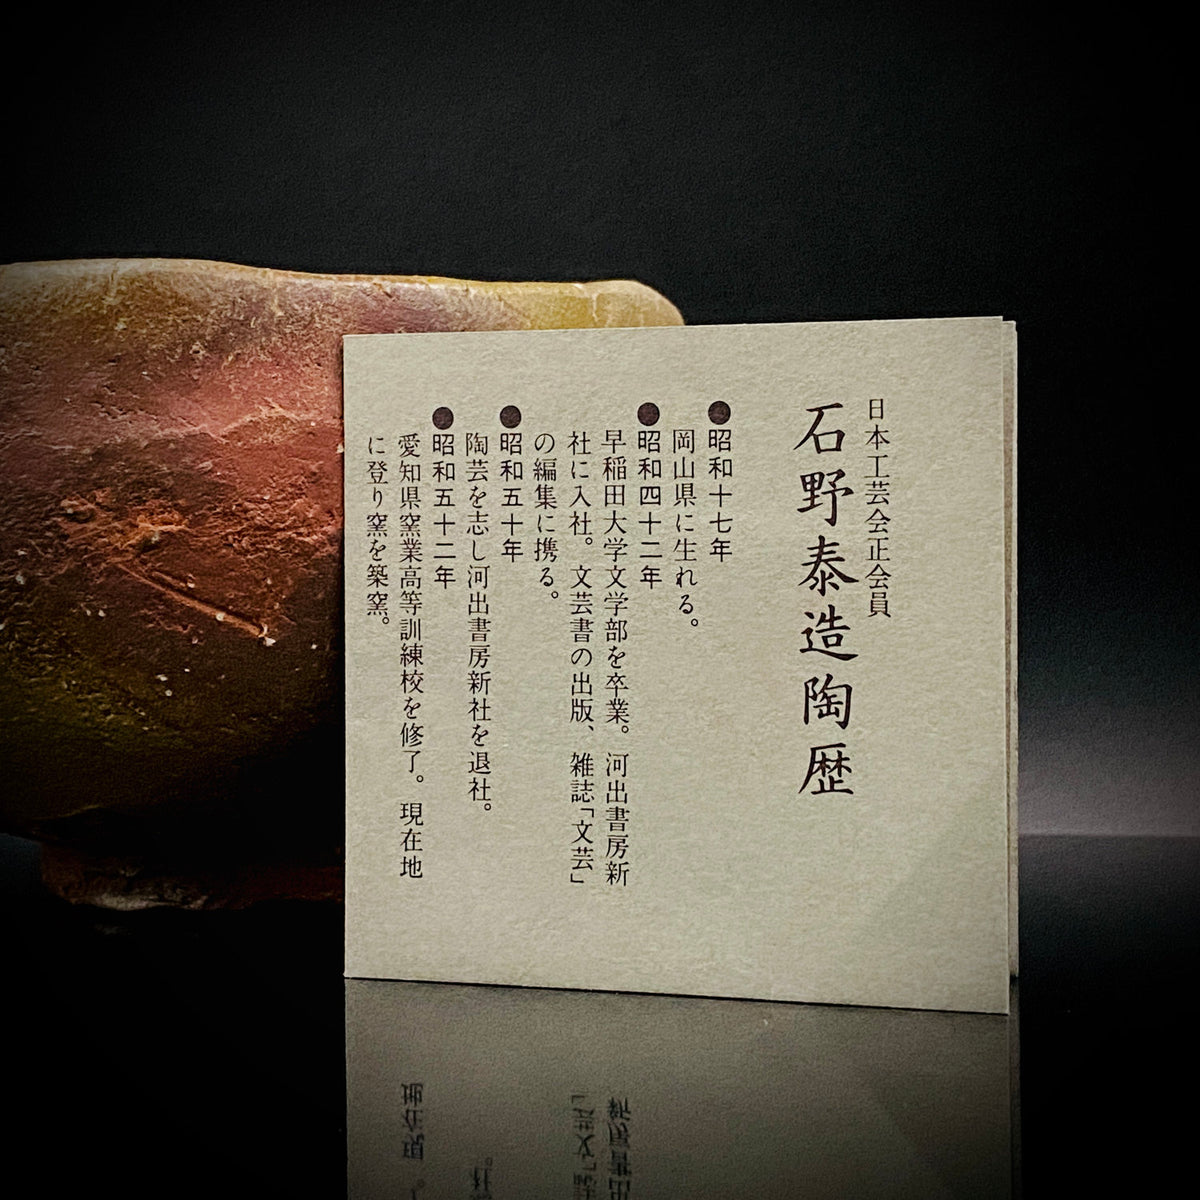 日本工芸会正会員
石野泰造陶歴
●昭和十七年
岡山県に生れる。
●昭和四十二年
早稲田大学文学部を卒業。河出書房新
社に入社。文芸書の出版、雑誌「文芸」
の編集に携る。
●昭和五十年
陶芸を志し河出書房新社を退社。
●昭和五十二年
愛知県窯業高等訓練校を修了。現在地
に登り窯を築窯。